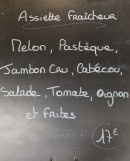 Assiette Fraîcheur
Melon, Pastèque,
Jambon Cru, Cabécou,
Salade, Tomate, Oignon
et Frites
17€